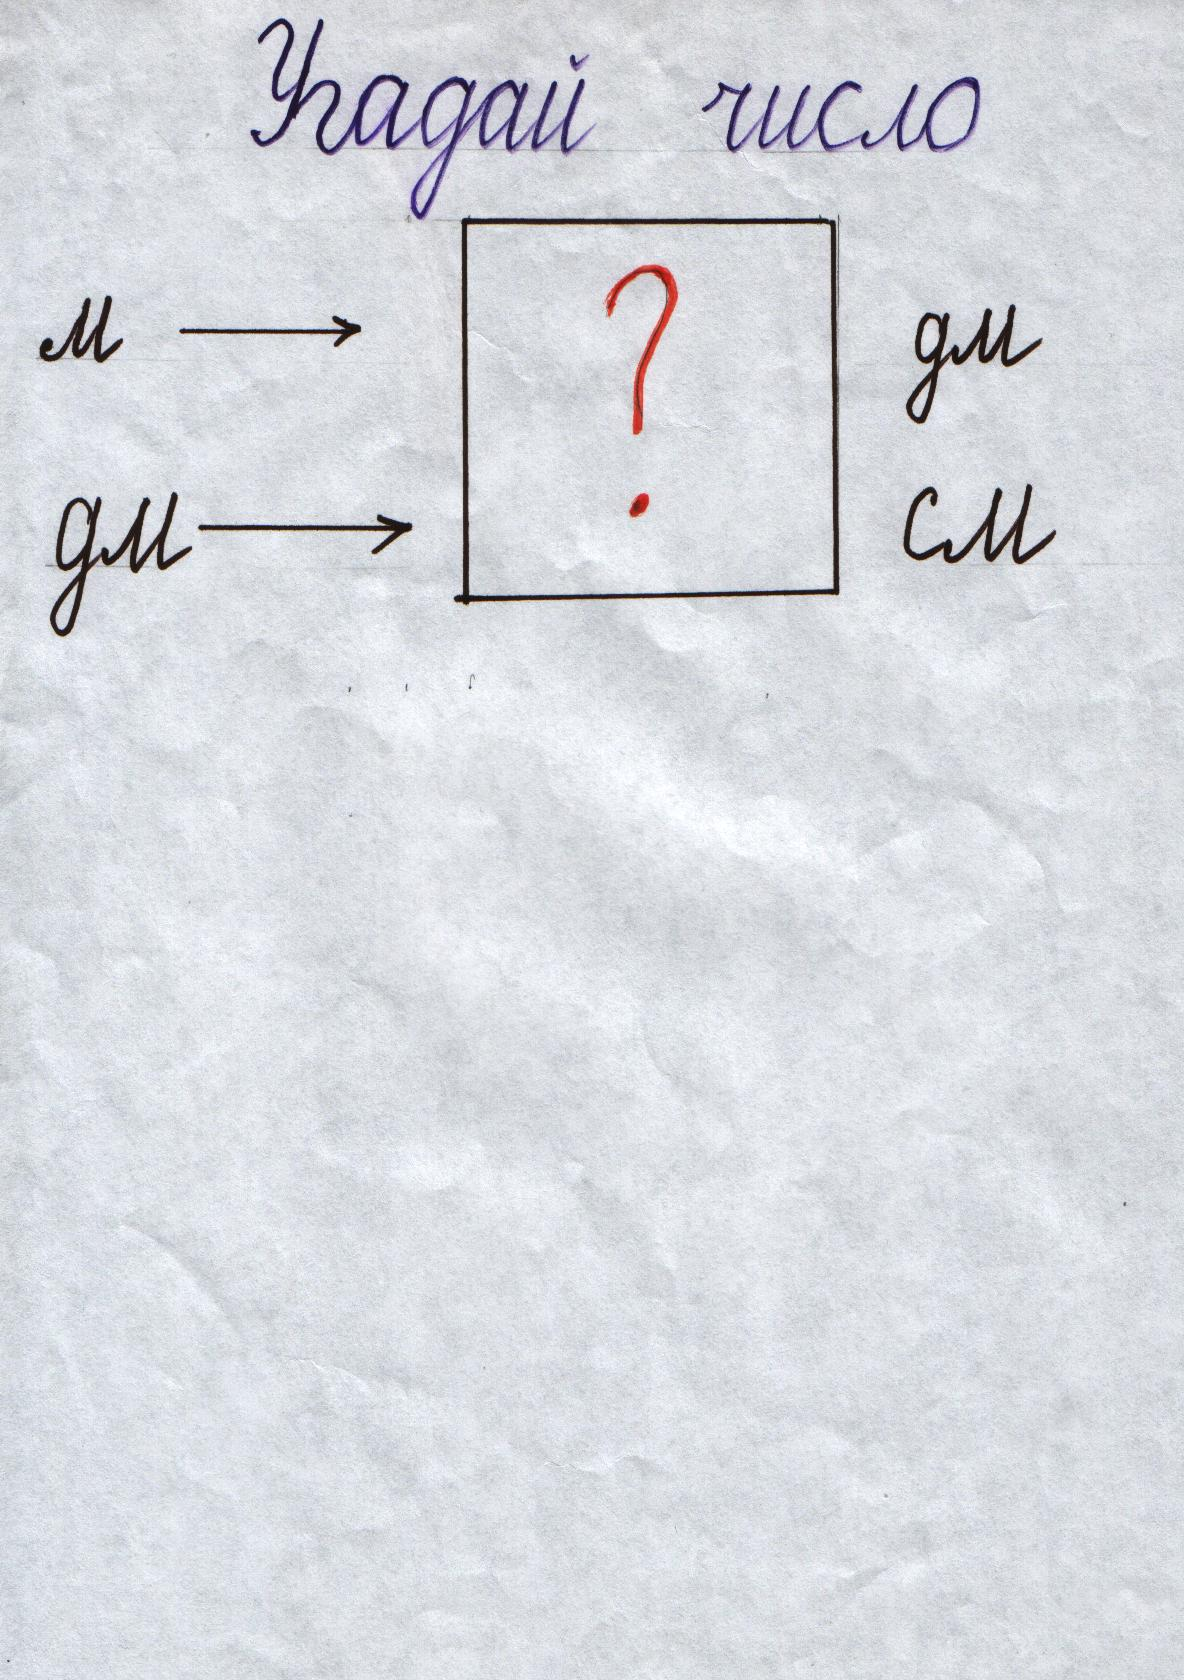 Угадай число
м → ? дм
дм → см